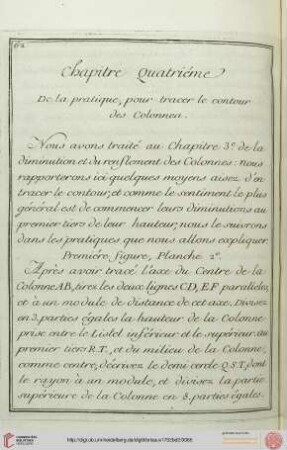 Chapitre Quatriéme
De la pratique, pour tracer le contour
des Colonnes.
Nous avons traité au Chapitre 3e. de la
diminution et du renflement des Colonnes: nous
rapporterons ici quelques moyens aisez d'en
tracer le contour, et comme le sentiment le plus
général est de commencer leurs diminutions au
premier tiers de leur hauteur, nous le suivrons
dans les pratiques que nous allons expliquer.
Premiére figure, Planche 2e.
Après avoir tracé l'axe du Centre de la
Colonne AB, tirez les deux lignes CD, EF paralleles,
et à un module de distance de cet axe. Divisez
en 3. parties égales la hauteur de la Colonne
prise entre le Listel inférieur et le supérieur: au
premier tiers R.T., et du milieu de la Colonne,
comme centre, décrivez le demi cercle Q.S.T, dont
le rayon à un module, et divisez la partie
supérieure de la Colonne en 8. parties égales.